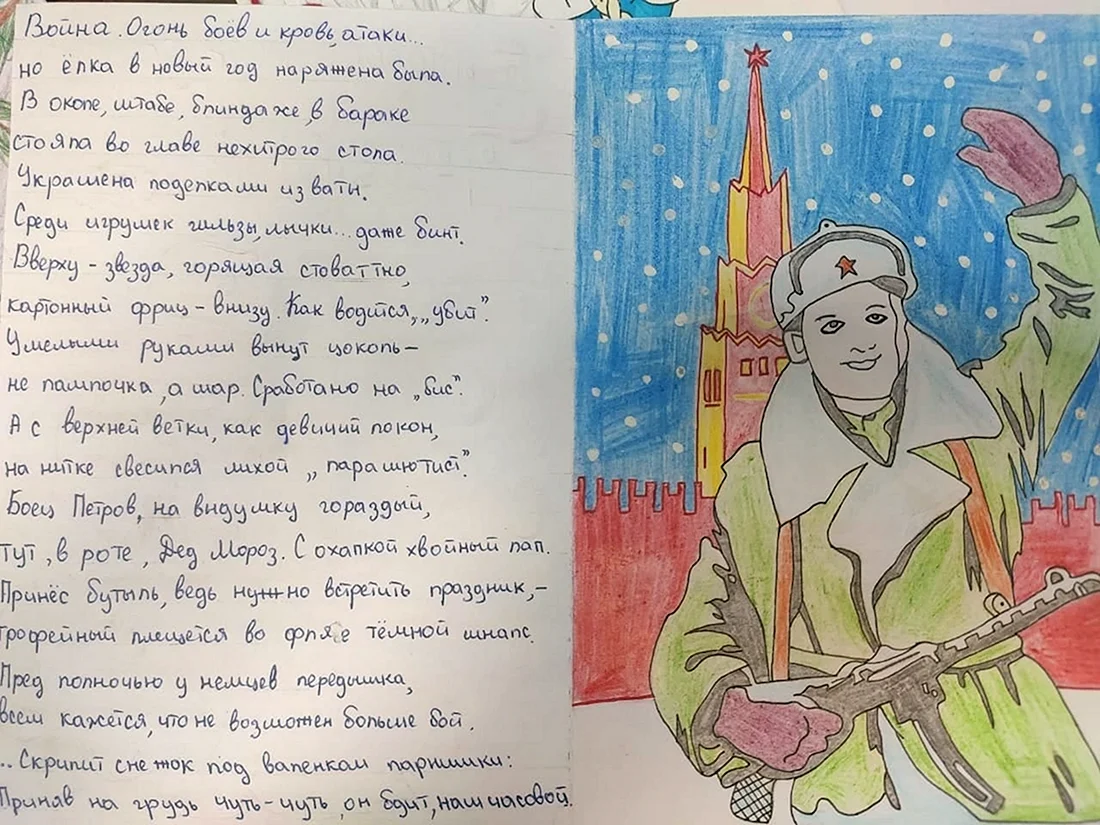 Война. Огонь боёв и кровь, атаки...
но ёлка в новый год наряжена была.
В окопе, штабе, блиндаже, в бараке
стояла во главе нехитрого стола.
Украшена поделками из ваты.
Среди игрушек гильзы, лычки... даже бинт.
Вверху - звезда, горящая стоваттно,
картонный фриц - внизу. Как водится, „убит”.
Умелыми руками вынут цоколь-
не лампочка, а шар. Сработано на „бис”.
А с верхней ветки, как девичий локон,
на нитке свесился лихой „парашютист”.
Боец Петров, на выдумку гораздый,
тут, в роте, Дед Мороз. С охапкой хвойный лап.
Принёс бутыль, ведь нужно встретить праздник,-
трофейный плещется во фляге тёмной шнапс.
Пред полночью у немцев передышка,
всем кажется, что не возможен больше бой.
...Скрипит снежок под валенкам парнишки:
Приняв на грудь чуть-чуть, он бдит, наш часовой.